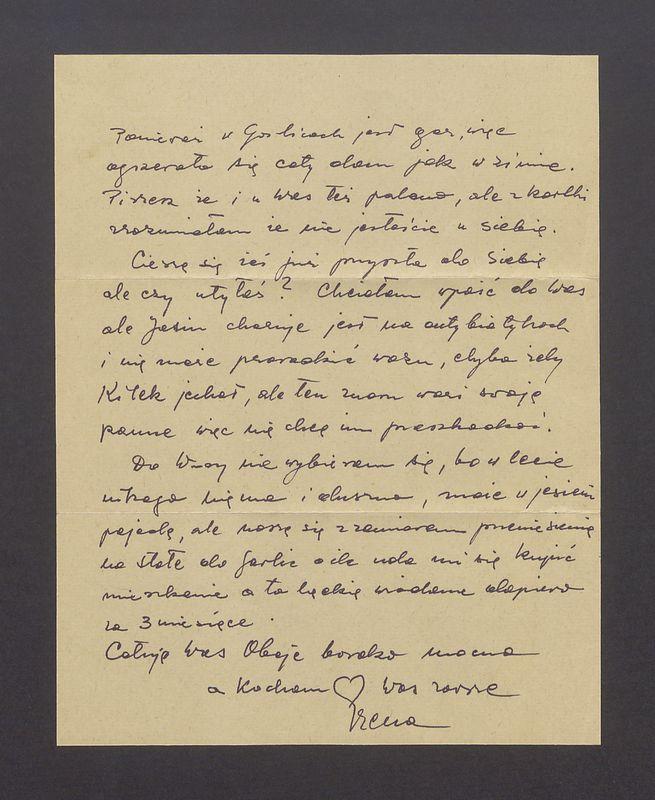 Ponieważ w Gorlicach jest gaz, więc
ogrzewała się cały dom jak w zimie.
Piszesz że i u Was też palono, ale z kartki
zrozumiałam że nie jesteście u siebie.
Cieszę się żeś już przyszła do siebie
ale czy utyłaś? Chciałam wpaść do Was
ale Jasiu choruje jest na antybiotykach
i nie może prowadzić wozu, chyba żeby
Kilek jechał, ale ten znowu wozi swoją
pannę więc nie chcę im przeszkadzać.
Do W-wy nie wybieram się, bo w lecie
nikogo nie ma i duszno, może w jesieni
pojadę, ale noszę się z zamiarem przeniesienia
na stałe do Gorlic o ile uda mi się kupić
mieszkanie a to będzie wiadome dopiero
za 3 miesiące.
Całuję Was Oboje bardzo mocno
a Kocham ♡ Was zawsze
Irena